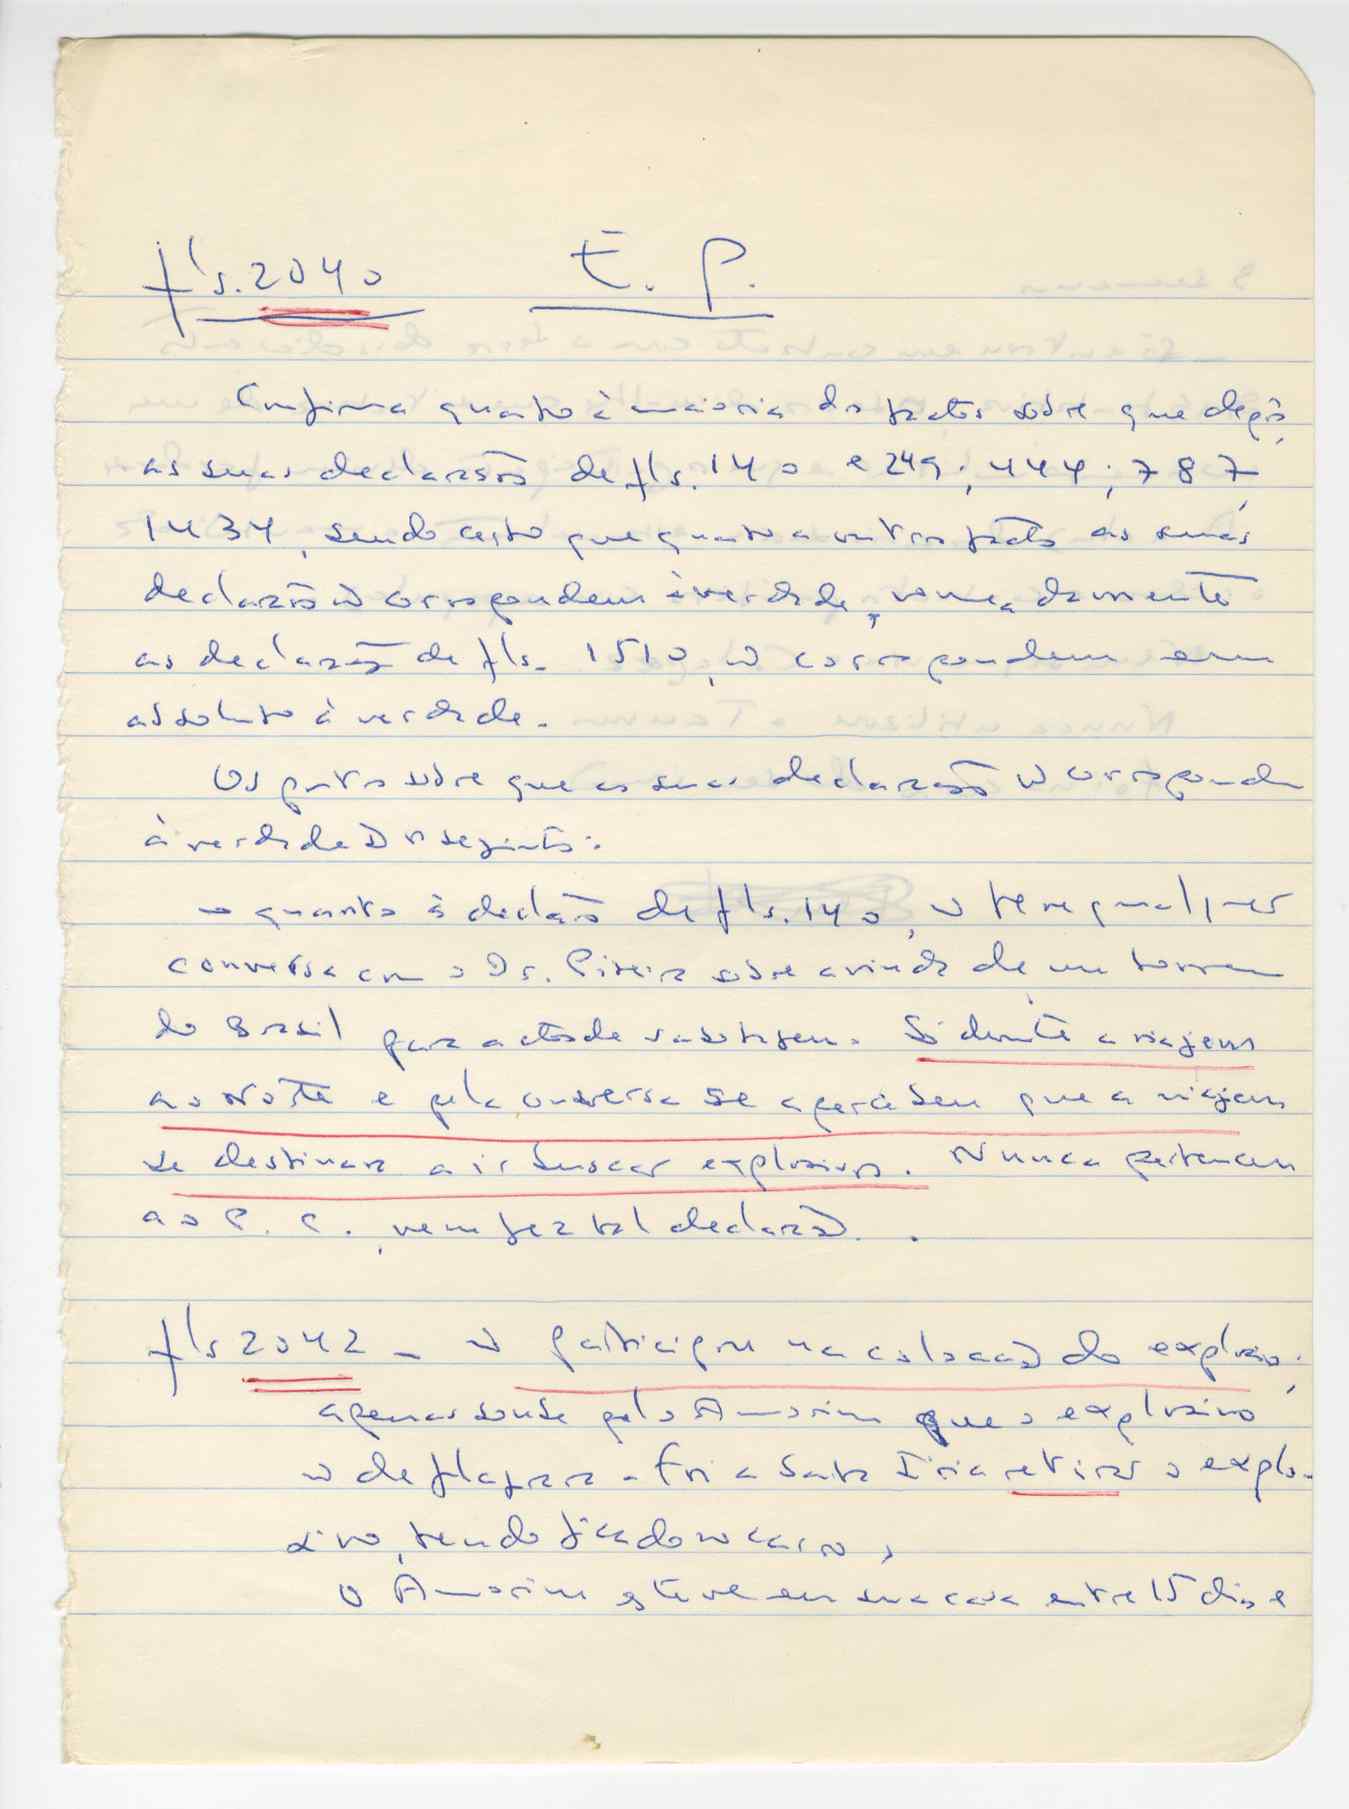 fls. 2040 E. P.
Confirma quanto à maioria dos factos sobre que depôs,
as suas declarações de fls. 140 e 249; 444; 787,
1434, sendo certo que quanto a outros factos as suas
declarações ñ correspondem à verdade, nomeadamente
as declarações de fls. 1510, ñ correspondem em
absoluto à verdade.
Os pontos sobre que as suas declarações ñ correspondem
à verdade são os seguintes:
– quanto à declaração de fls. 140, ñ teve qualquer
conversa com o Dr. sobre a vinda de um homem
do Brasil para actos de sabotagem. Só durante a viagem
ao Norte e pela conversa se apercebeu que a viagem
se destinava a ir buscar explosivos. Nunca pertenceu
ao P. C., nem fez tal declaração.
fls 2042 – ñ participou na colocação do explosivo;
apenas soube pelo Amorim que o explosivo
ñ deflagrara – Foi a Santa Iria retirar o explo-
sivo, tendo ficado no carro,
O Amorim esteve em sua casa entre 15 dias e